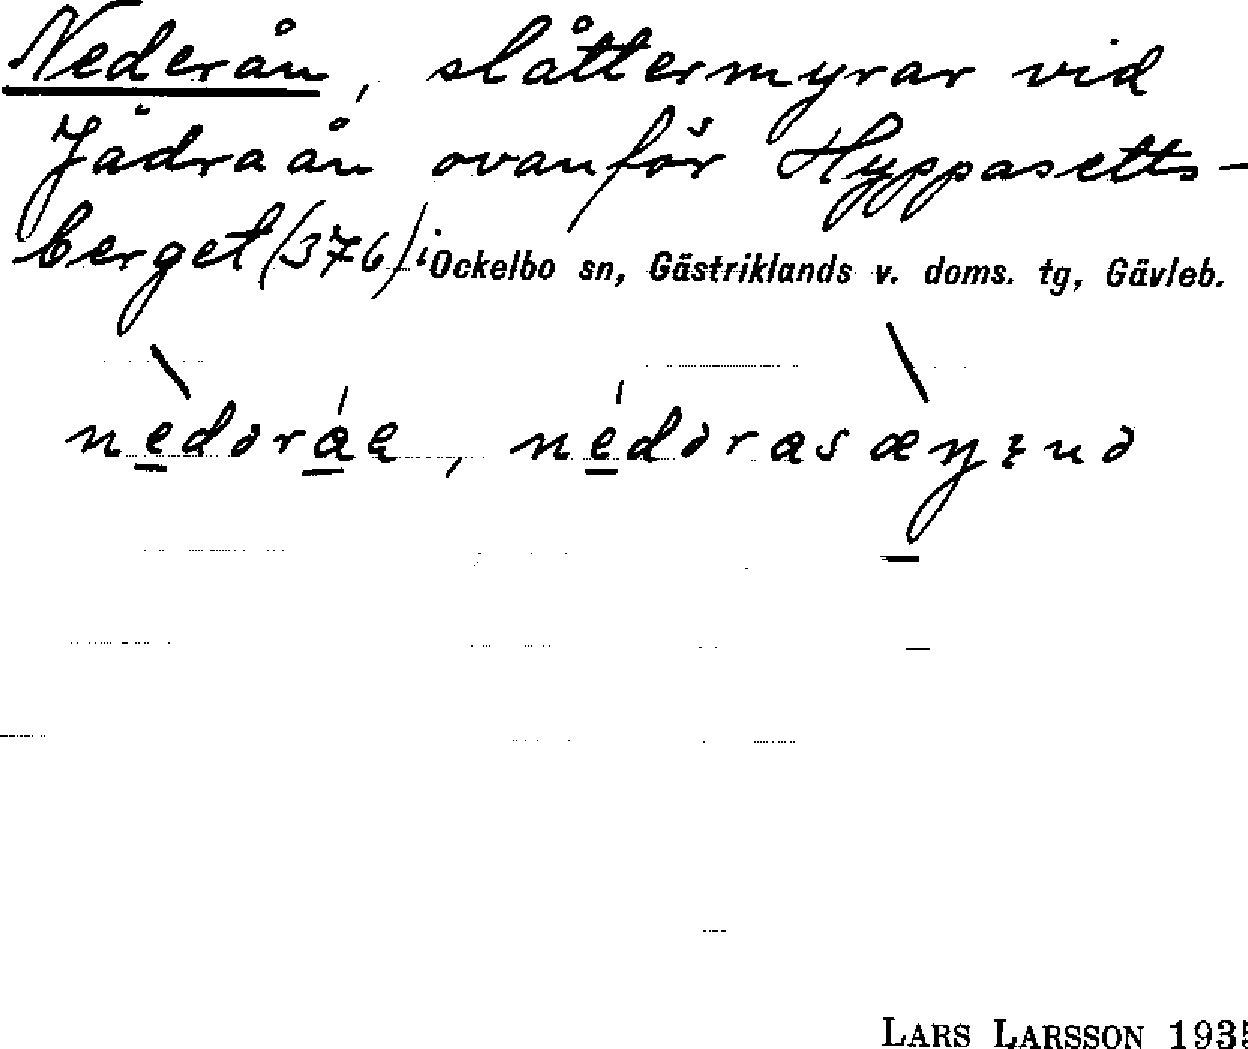 Nederån, slåttermyrar vid
Jädraån ovanför Hyppasetts-
berget (376) i Ockelbo sn, Gästriklands v. doms. tg, Gävleb.
LARS LARSSON 1935